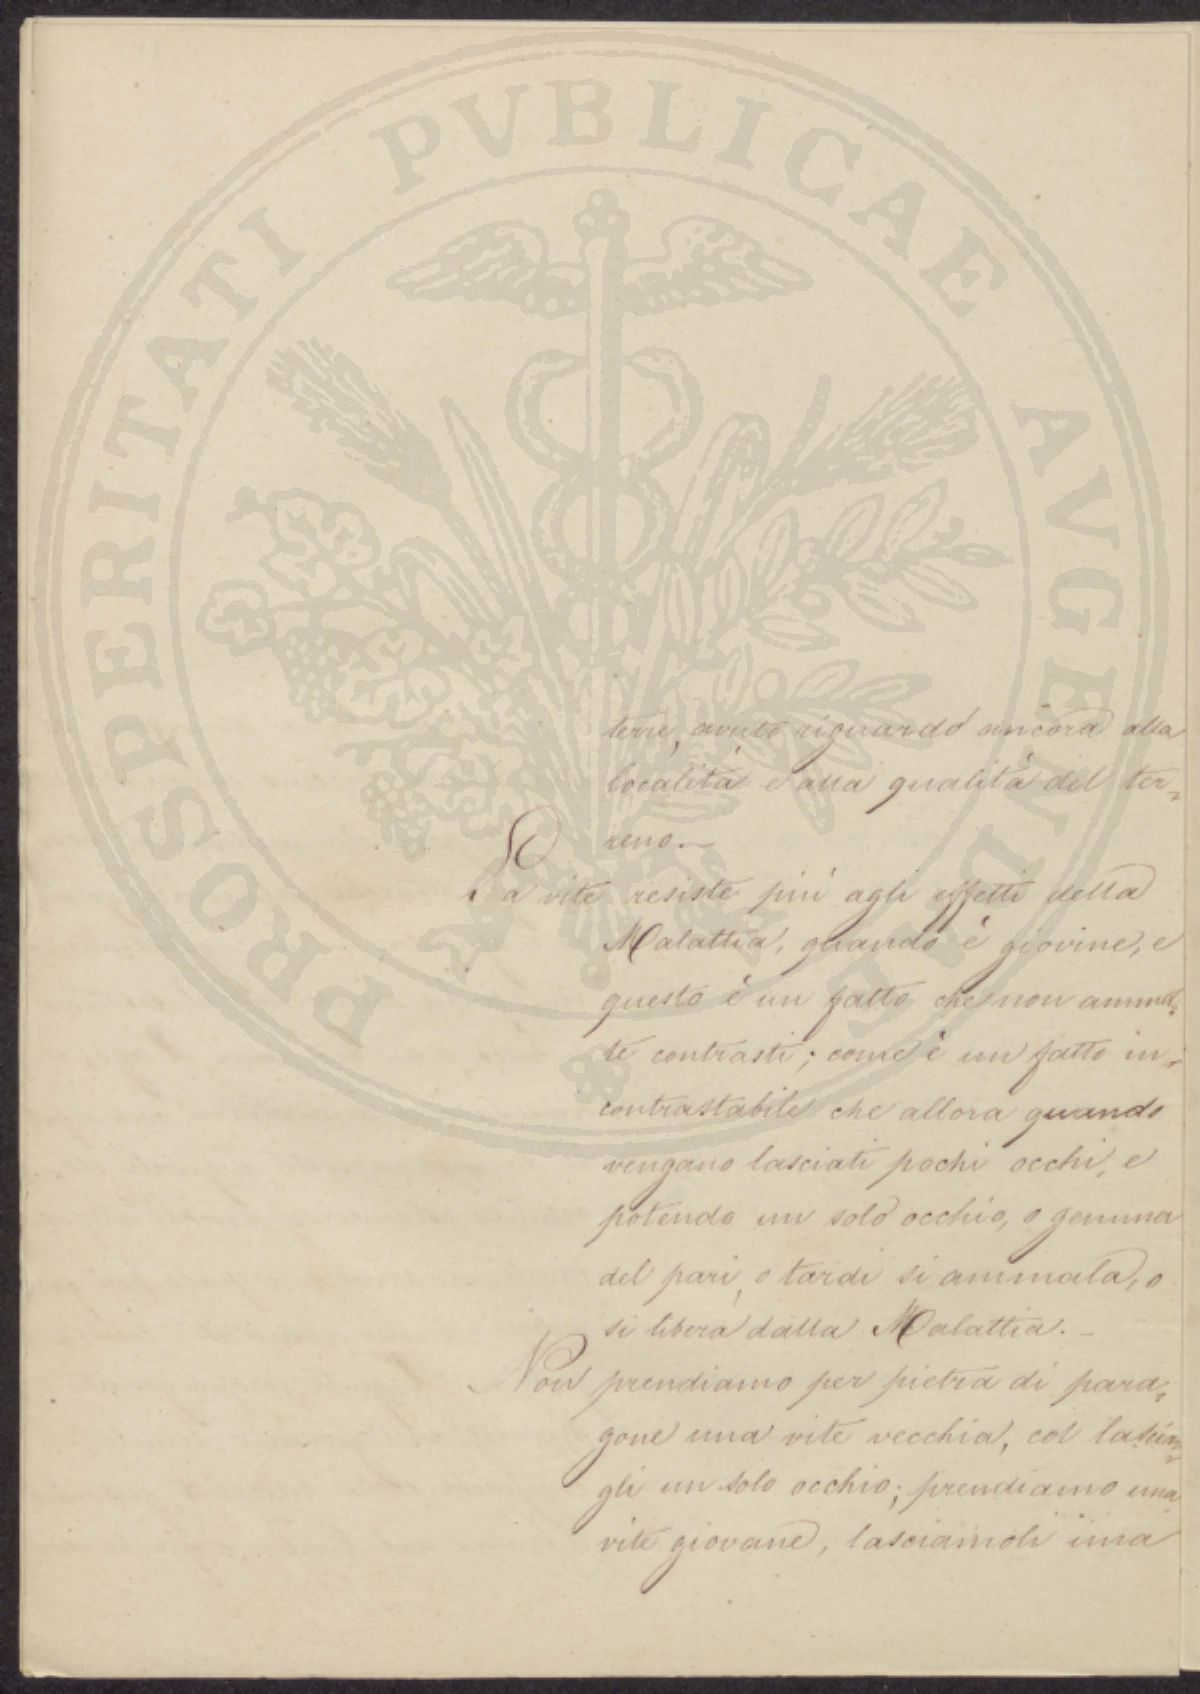 PROSPERITATI PVBLICAE AVGENDAE
terre, avuto riguardo ancora alla
località e alla qualità del ter=
reno.—
La vite resiste più agli effetti della
Malattia, quando è giovine, e
questo è un fatto che non ammet=
te contrasti; come è un fatto in=
contrastabile che allora quando
vengano lasciati pochi occhi, e
potendo un solo occhio, o gemma
del pari, o tardi si ammala, o
si libera dalla Malattia.—
Non prendiamo per pietra di para=
gone una vite vecchia, col lasciar=
gli un solo occhio; prendiamo una
vite giovane, lasciamoli una